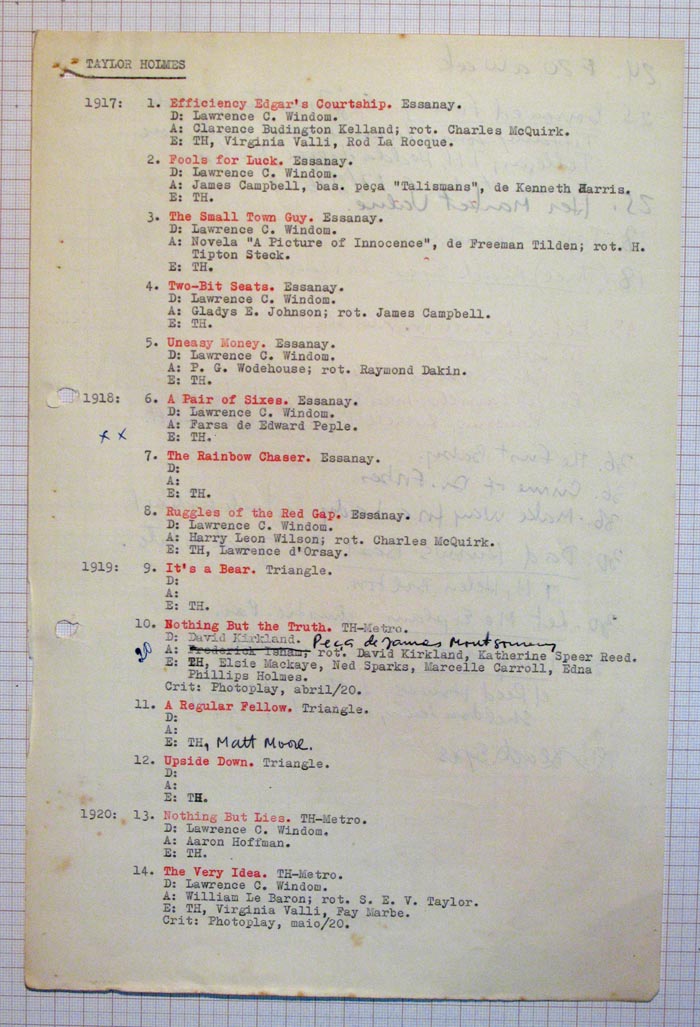 TAYLOR HOLMES
1917: 1. Efficiency Edgar's Courtship. Essanay.
D: Lawrence C. Windom.
A: Clarence Budington Kelland; rot. Charles McQuirk.
E: TH, Virginia Valli, Rod La Rocque.
2. Fools for Luck. Essanay.
D: Lawrence C. Windom.
A: James Campbell, bas. peça "Talismans", de Kenneth Harris.
E: TH.
3. The Small Town Guy. Essanay.
D: Lawrence C. Windom.
A: Novela "A Picture of Innocence", de Freeman Tilden; rot. H.
Tipton Steck.
E: TH.
4. Two-Bit Seats. Essanay.
D: Lawrence C. Windom.
A: Gladys E. Johnson; rot. James Campbell.
E: TH.
5. Uneasy Money. Essanay.
D: Lawrence C. Windom.
A: P. G. Wodehouse; rot. Raymond Dakin.
E: TH.
1918: 6. A Pair of Sixes. Essanay.
D: Lawrence C. Windom.
A: Farsa de Edward Peple.
x x E: TH.
7. The Rainbow Chaser. Essanay.
D:
A:
E: TH.
8. Ruggles of the Red Gap. Essanay.
D: Lawrence C. Windom.
A: Harry Leon Wilson; rot. Charles McQuirk.
E: TH, Lawrence d'Orsay.
1919: 9. It's a Bear. Triangle.
D:
A:
E: TH.
10. Nothing But the Truth. TH-Metro.
D: David Kirkland. Peça de James Montgomery
20 A: Frederick Isham; rot. David Kirkland, Katherine Speer Reed.
E: TH, Elsie Mackaye, Ned Sparks, Marcelle Carroll, Edna
Phillips Holmes.
Crit: Photoplay, abril/20.
11. A Regular Fellow. Triangle.
D:
A:
E: TH, Matt Moore.
12. Upside Down. Triangle.
D:
A:
E: TH.
1920: 13. Nothing But Lies. TH-Metro.
D: Lawrence C. Windom.
A: Aaron Hoffman.
E: TH.
14. The Very Idea. TH-Metro.
D: Lawrence C. Windom.
A: William Le Baron; rot. S. E. V. Taylor.
E: TH, Virginia Valli, Fay Marbe.
Crit: Photoplay, maio/20.